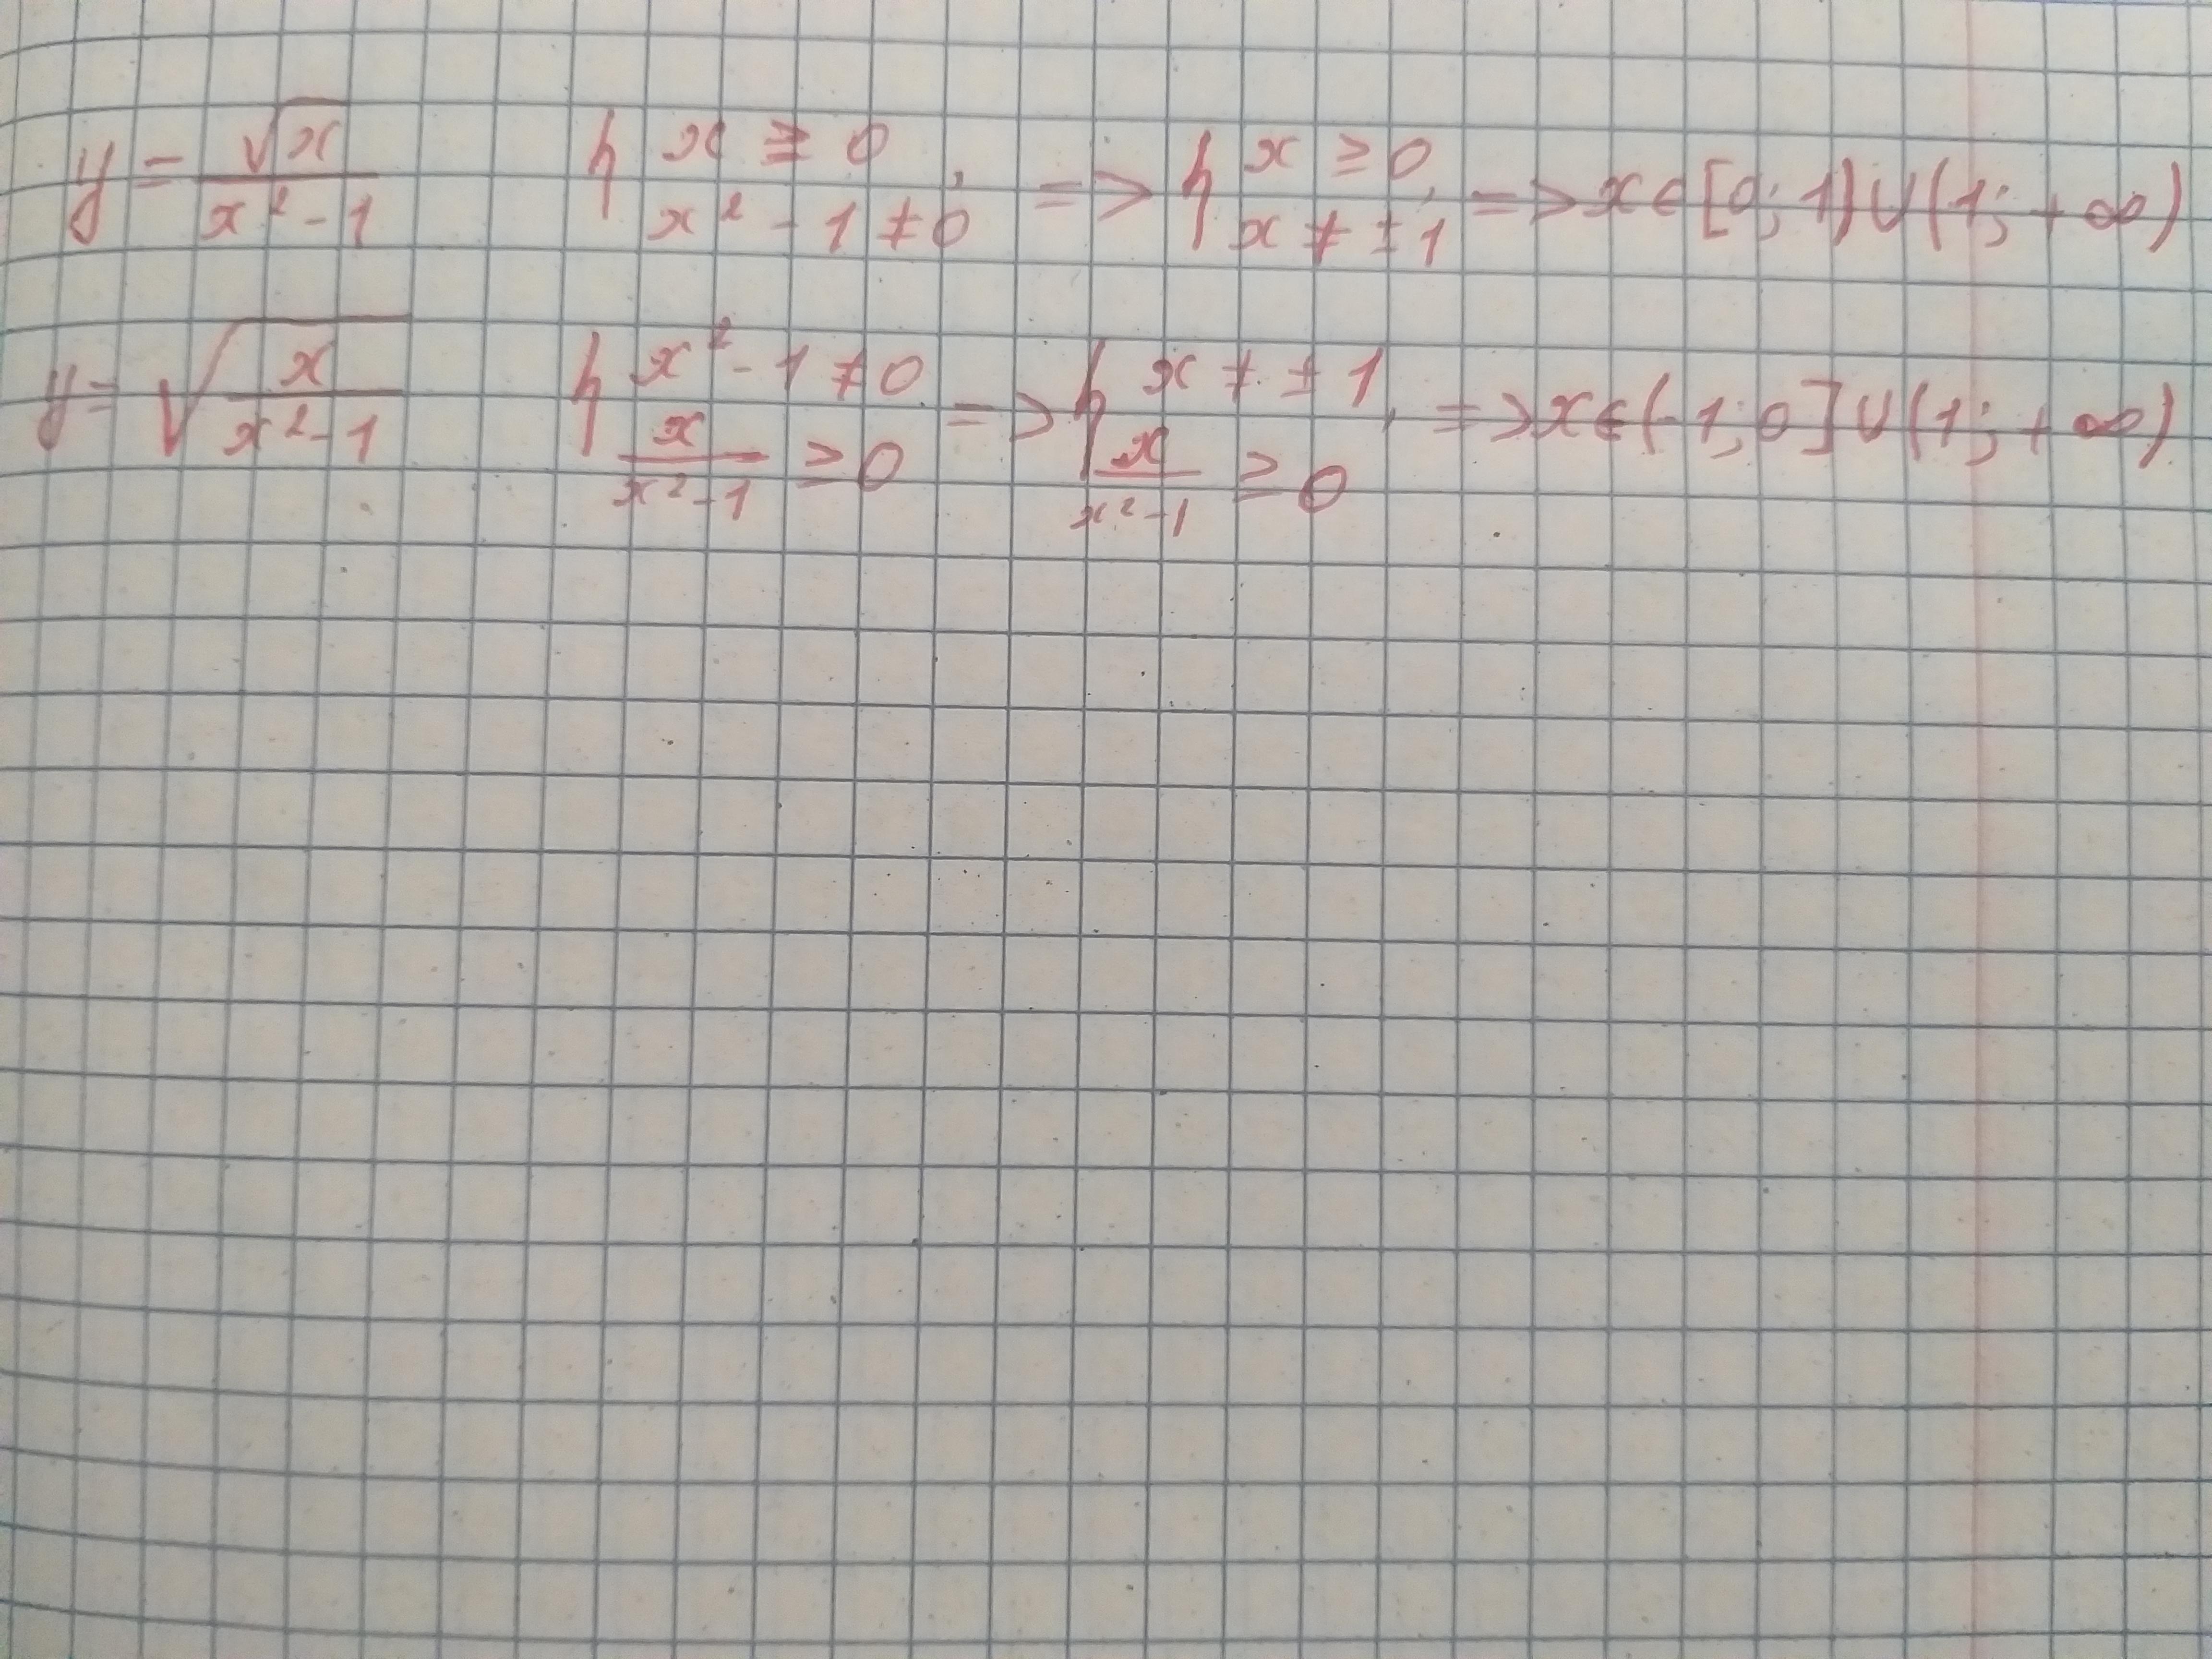 y = √x / (x² - 1) { x ≥ 0, x² - 1 ≠ 0 => { x ≥ 0, x ≠ ± 1 => x ∈ [0; 1) ∪ (1; + ∞)
y = √(x / (x² - 1)) { x² - 1 ≠ 0 x / (x² - 1) ≥ 0 => { x ≠ ± 1, x / (x² - 1) ≥ 0 => x ∈ (- 1; 0] ∪ (1; + ∞)